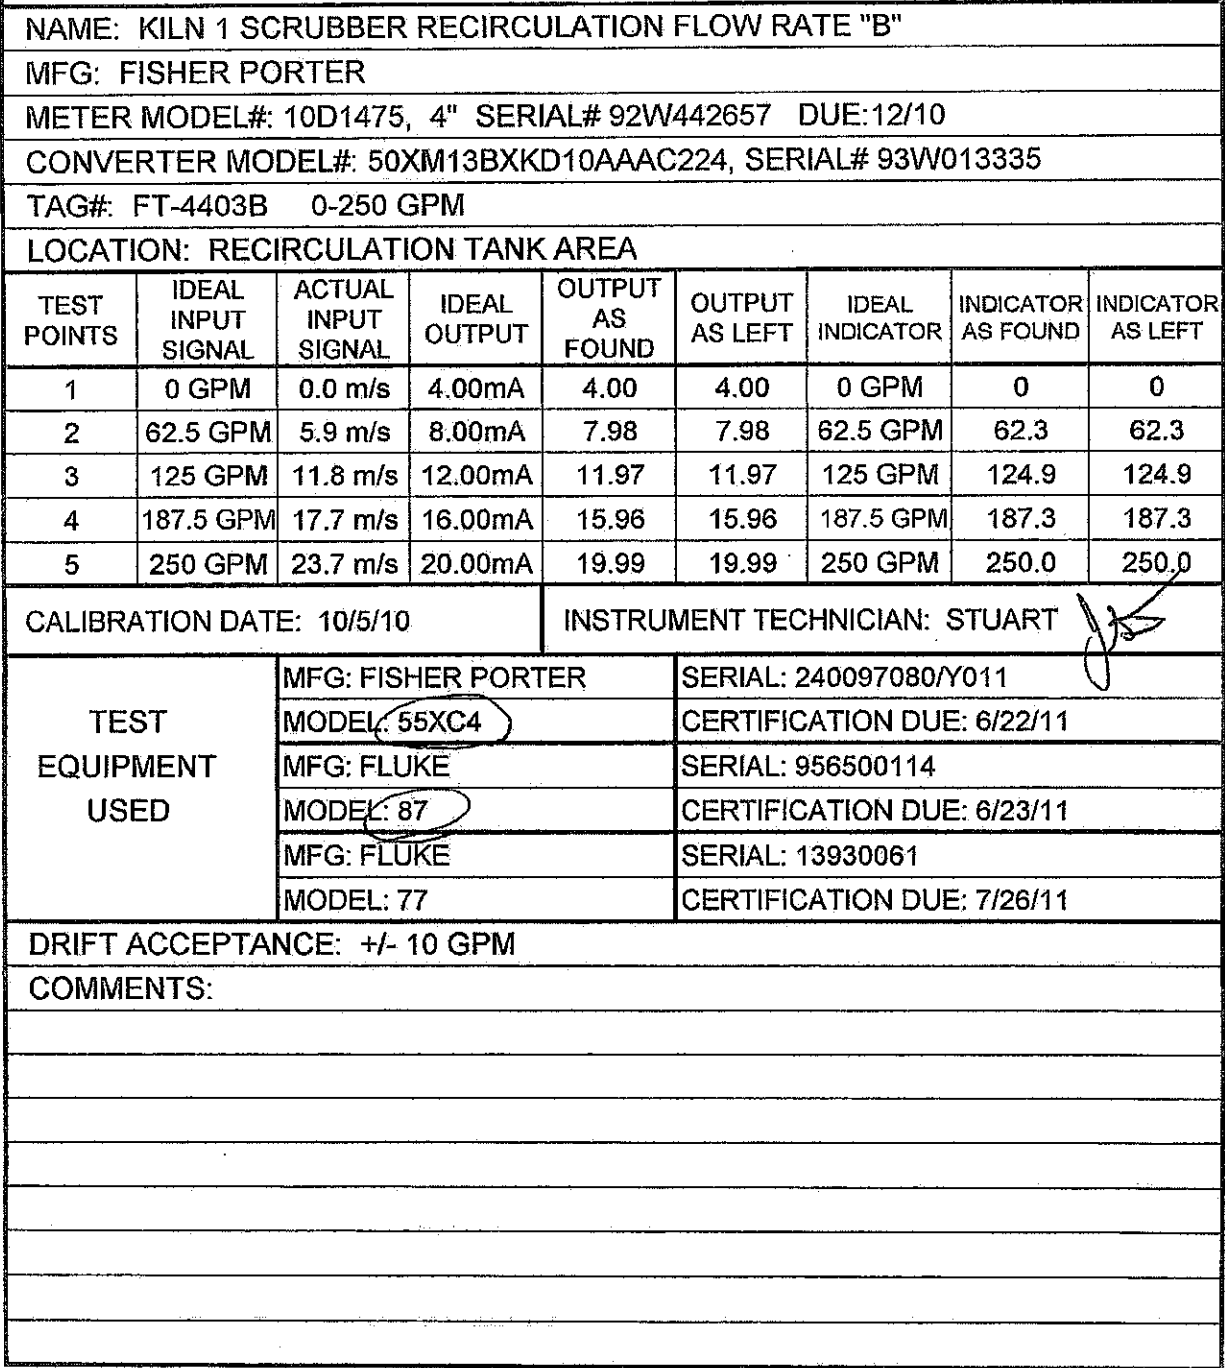 NAME: KILN 1 SCRUBBER RECIRCULATION FLOW RATE "B"
MFG: FISHER PORTER
METER MODEL#: 10D1475, 4" SERIAL# 92W442657 DUE:12/10
CONVERTER MODEL#: 50XM13BXKD10AAAC224, SERIAL# 93W013335
TAG#: FT-4403B 0-250 GPM
LOCATION: RECIRCULATION TANK AREA
TEST POINTS IDEAL INPUT SIGNAL ACTUAL INPUT SIGNAL IDEAL OUTPUT OUTPUT AS FOUND OUTPUT AS LEFT IDEAL INDICATOR INDICATOR AS FOUND INDICATOR AS LEFT
1 0 GPM 0.0 m/s 4.00mA 4.00 4.00 0 GPM 0 0
2 62.5 GPM 5.9 m/s 8.00mA 7.98 7.98 62.5 GPM 62.3 62.3
3 125 GPM 11.8 m/s 12.00mA 11.97 11.97 125 GPM 124.9 124.9
4 187.5 GPM 17.7 m/s 16.00mA 15.96 15.96 187.5 GPM 187.3 187.3
5 250 GPM 23.7 m/s 20.00mA 19.99 19.99 250 GPM 250.0 250.0
CALIBRATION DATE: 10/5/10 INSTRUMENT TECHNICIAN: STUART
TEST EQUIPMENT USED
MFG: FISHER PORTER SERIAL: 240097080/Y011
MODEL: 55XC4 CERTIFICATION DUE: 6/22/11
MFG: FLUKE SERIAL: 956500114
MODEL: 87 CERTIFICATION DUE: 6/23/11
MFG: FLUKE SERIAL: 13930061
MODEL: 77 CERTIFICATION DUE: 7/26/11
DRIFT ACCEPTANCE: +/- 10 GPM
COMMENTS: